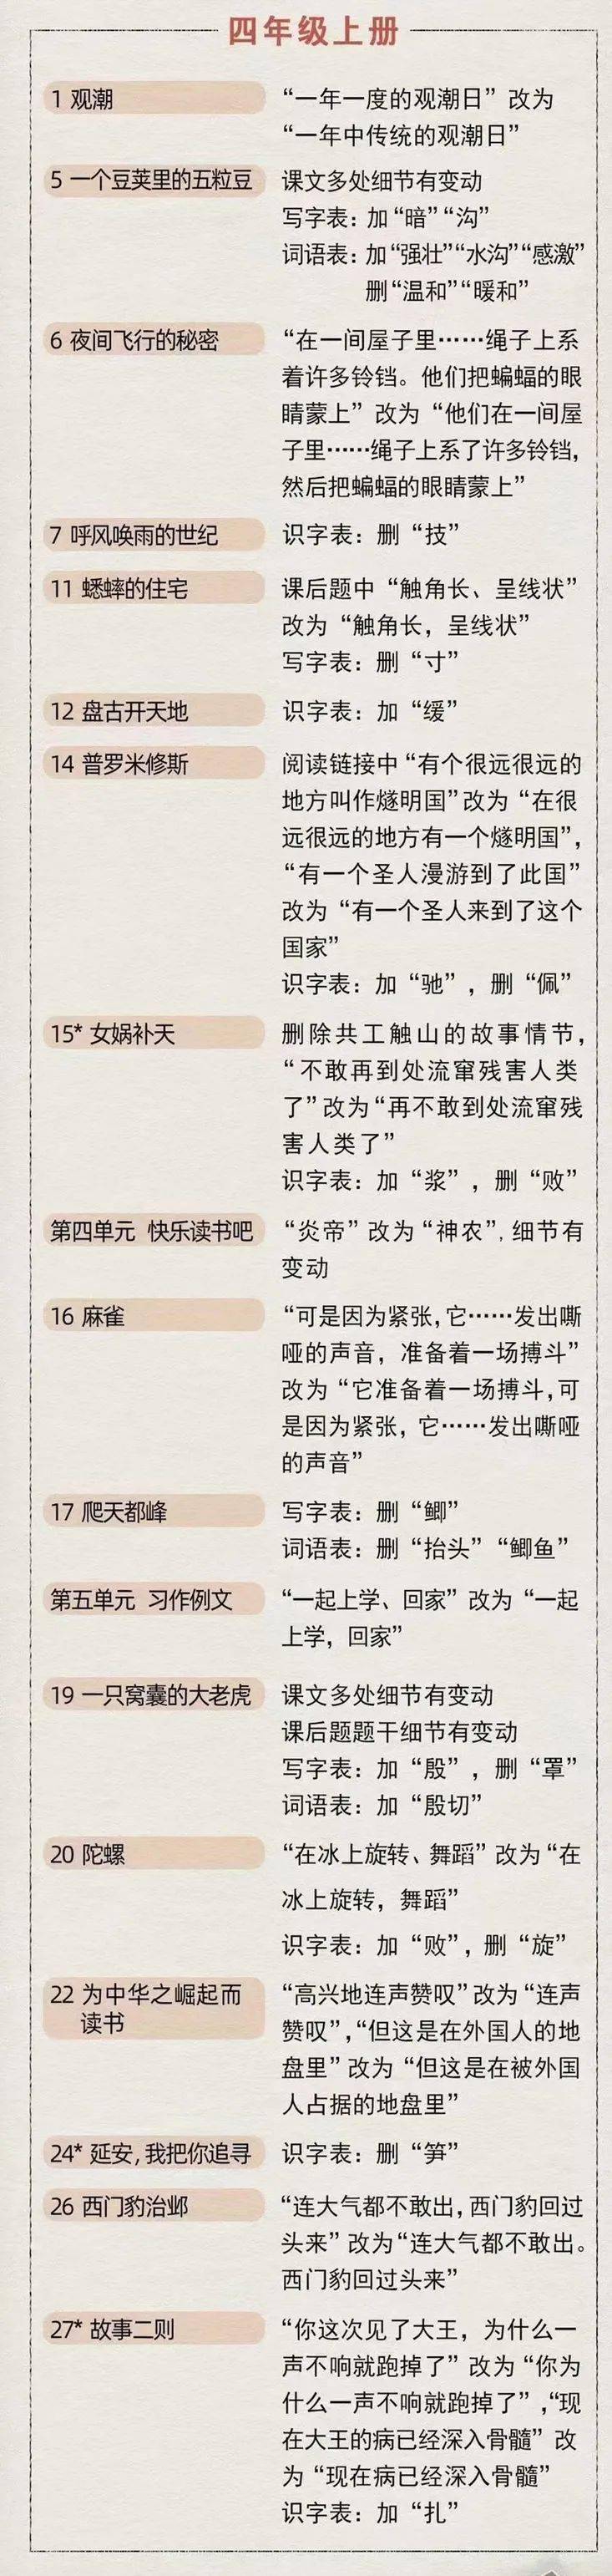 四年级上册
1 观潮
“一年一度的观潮日”改为
“一年中传统的观潮日”
5 一个豆荚里的五粒豆
课文多处细节有变动
写字表：加“暗”“沟”
词语表：加“强壮”“水沟”“感激”
删“温和”“暖和”
6 夜间飞行的秘密
“在一间屋子里……绳子上系
着许多铃铛。他们把蝙蝠的眼
睛蒙上”改为“他们在一间屋
子里……绳子上系了许多铃铛，
然后把蝙蝠的眼睛蒙上”
7 呼风唤雨的世纪
识字表：删“技”
11 蟋蟀的住宅
课后题中“触角长、呈线状”
改为“触角长，呈线状”
写字表：删“寸”
12 盘古开天地
识字表：加“缓”
14 普罗米修斯
阅读链接中“有个很远很远的
地方叫作燧明国”改为“在很
远很远的地方有一个燧明国”，
“有一个圣人漫游到了此国”
改为“有一个圣人来到了这个
国家”
识字表：加“驰”，删“佩”
15* 女娲补天
删除共工触山的故事情节，
“不敢再到处流窜残害人类
了”改为“再不敢到处流窜残
害人类了”
识字表：加“浆”，删“败”
第四单元 快乐读书吧
“炎帝”改为“神农”，细节有
变动
16 麻雀
“可是因为紧张，它……发出嘶
哑的声音，准备着一场搏斗”
改为“它准备着一场搏斗，可
是因为紧张，它……发出嘶哑
的声音”
17 爬天都峰
写字表：删“鲫”
词语表：删“抬头”“鲫鱼”
第五单元 习作例文
“一起上学、回家”改为“一起
上学，回家”
19 一只窝囊的大老虎
课文多处细节有变动
课后题题干细节有变动
写字表：加“殷”，删“罩”
词语表：加“殷切”
20 陀螺
“在冰上旋转、舞蹈”改为“在
冰上旋转，舞蹈”
识字表：加“败”，删“旋”
22 为中华之崛起而
读书
“高兴地连声赞叹”改为“连声
赞叹”，“但这是在外国人的地
盘里”改为“但这是在被外国
人占据的地盘里”
24* 延安，我把你追寻
识字表：删“笋”
26 西门豹治邺
“连大气都不敢出，西门豹回过
头来”改为“连大气都不敢出。
西门豹回过头来”
27* 故事二则
“你这次见了大王，为什么一
声不响就跑掉了”改为“你为
什么一声不响就跑掉了”，“现
在大王的病已经深入骨髓”改
为“现在病已经深入骨髓”
识字表：加“扎”